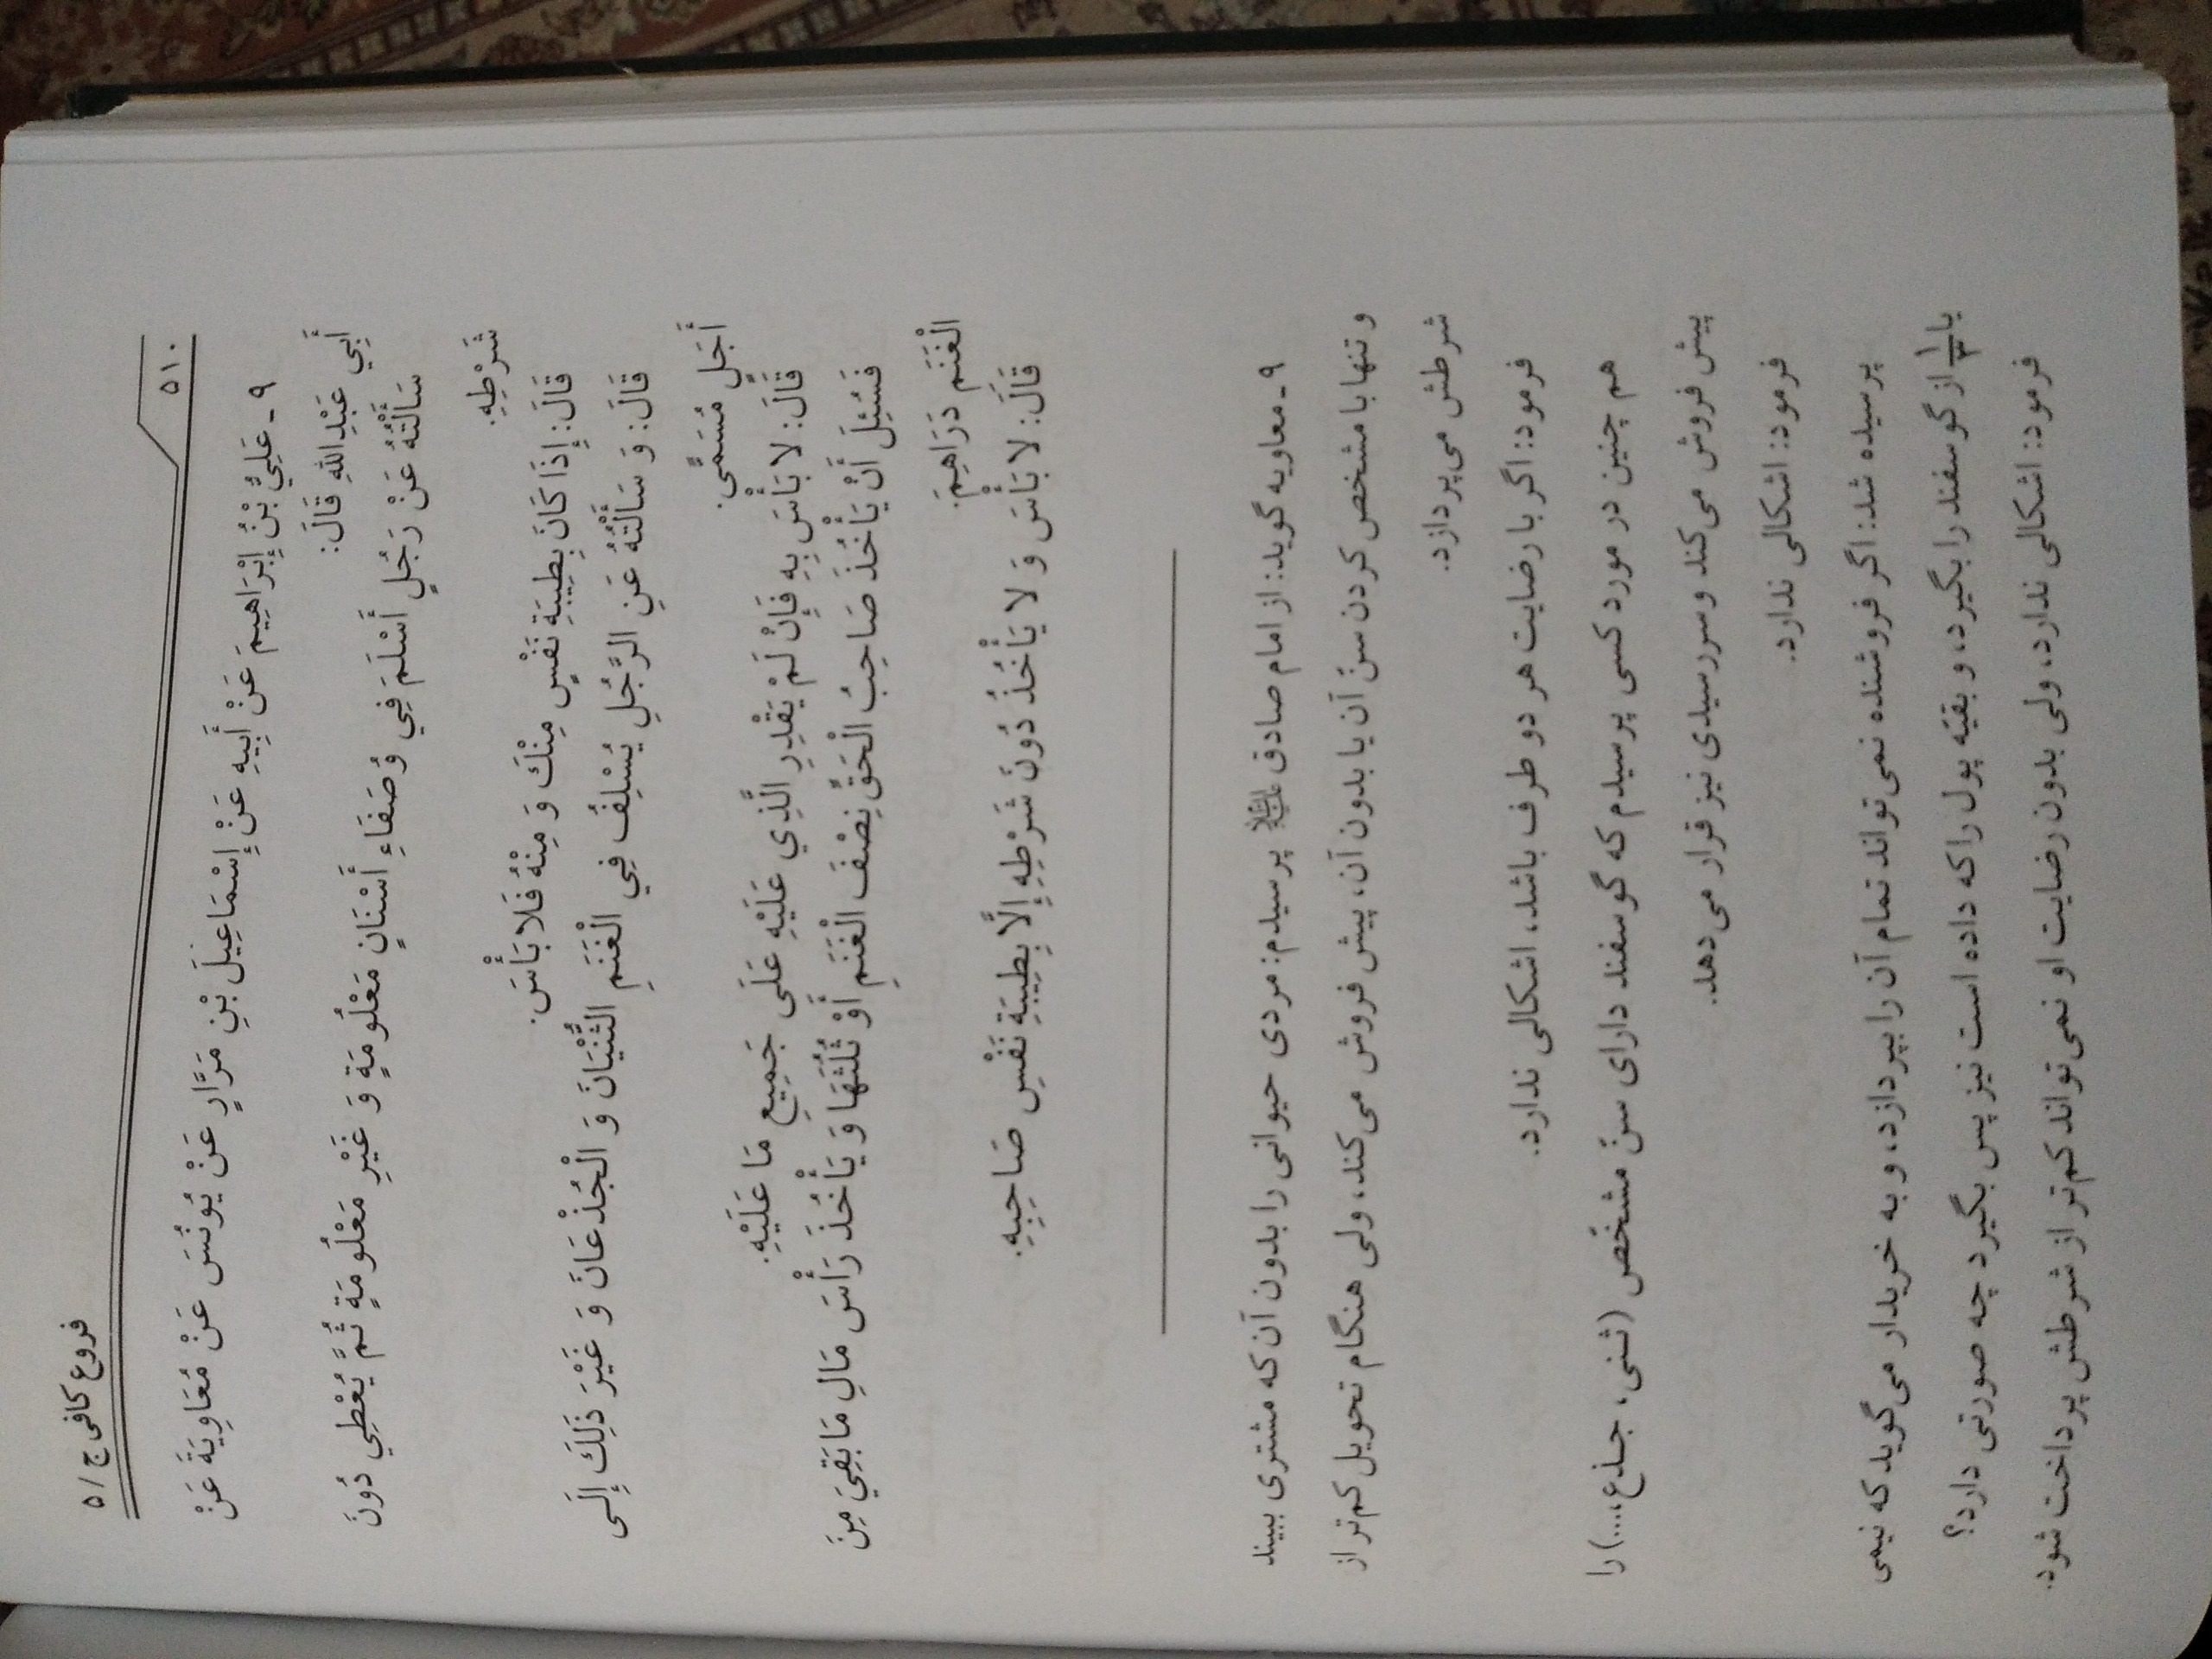 ۵۱۰
فروع کافی ج / ۵
۹ ـ عَلِيُّ بْنُ إِبْرَاهِيمَ عَنْ أَبِيهِ عَنْ إِسْمَاعِيلَ بْنِ مَرَّارٍ عَنْ يُونُسَ عَنْ مُعَاوِيَةَ عَنْ
أَبِي عَبْدِاللهِ قَالَ:
سَأَلْتُهُ عَنْ رَجُلٍ أَسْلَمَ فِي وُصَفَاءِ أَسْنَانٍ مَعْلُومَةٍ وَ غَيْرِ مَعْلُومَةٍ ثُمَّ يُعْطِي دُونَ
شَرْطِهِ.
قَالَ: إِذَا كَانَ بِطِيبَةِ نَفْسٍ مِنْكَ وَ مِنْهُ فَلا بَأْسَ.
قَالَ: وَ سَأَلْتُهُ عَنِ الرَّجُلِ يُسْلِفُ فِي الْغَنَمِ الثُّنْيَانَ وَ الْجُذْعَانَ وَ غَيْرَ ذَلِكَ إِلَى
أَجَلٍ مُسَمًّى.
قَالَ: لا بَأْسَ بِهِ فَإِنْ لَمْ يَقْدِرِ الَّذِي عَلَيْهِ عَلَى جَمِيعِ مَا عَلَيْهِ.
فَسُئِلَ أَنْ يَأْخُذَ صَاحِبُ الْحَقِّ نِصْفَ الْغَنَمِ أَوْ ثُلُثَهَا وَ يَأْخُذَ رَأْسَ مَالِ مَا بَقِيَ مِنَ
الْغَنَمِ دَرَاهِمَ.
قَالَ: لا بَأْسَ وَ لا يَأْخُذُ دُونَ شَرْطِهِ إِلَّا بِطِيبَةِ نَفْسِ صَاحِبِهِ.
۹ ـ معاویه گوید: از امام صادق علیه السلام پرسیدم: مردی حیوانی را بدون آن که مشتری ببیند
و تنها با مشخص کردن سنّ آن یا بدون آن، پیش فروش می‌کند، ولی هنگام تحویل کم‌تر از
شرطش می‌پردازد.
فرمود: اگر با رضایت هر دو طرف باشد، اشکالی ندارد.
هم چنین در مورد کسی پرسیدم که گوسفند دارای سنّ مشخّص (ثنی، جذع،...) را
پیش فروش می‌کند و سررسیدی نیز قرار می‌دهد.
فرمود: اشکالی ندارد.
پرسیده شد: اگر فروشنده نمی‌تواند تمام آن را بپردازد، و به خریدار می‌گوید که نیمی
یا ۱/۳ از گوسفند را بگیرد، و بقیّه پول را که داده است نیز پس بگیرد چه صورتی دارد؟
فرمود: اشکالی ندارد، ولی بدون رضایت او نمی‌تواند کم‌تر از شرطش پرداخت شود.